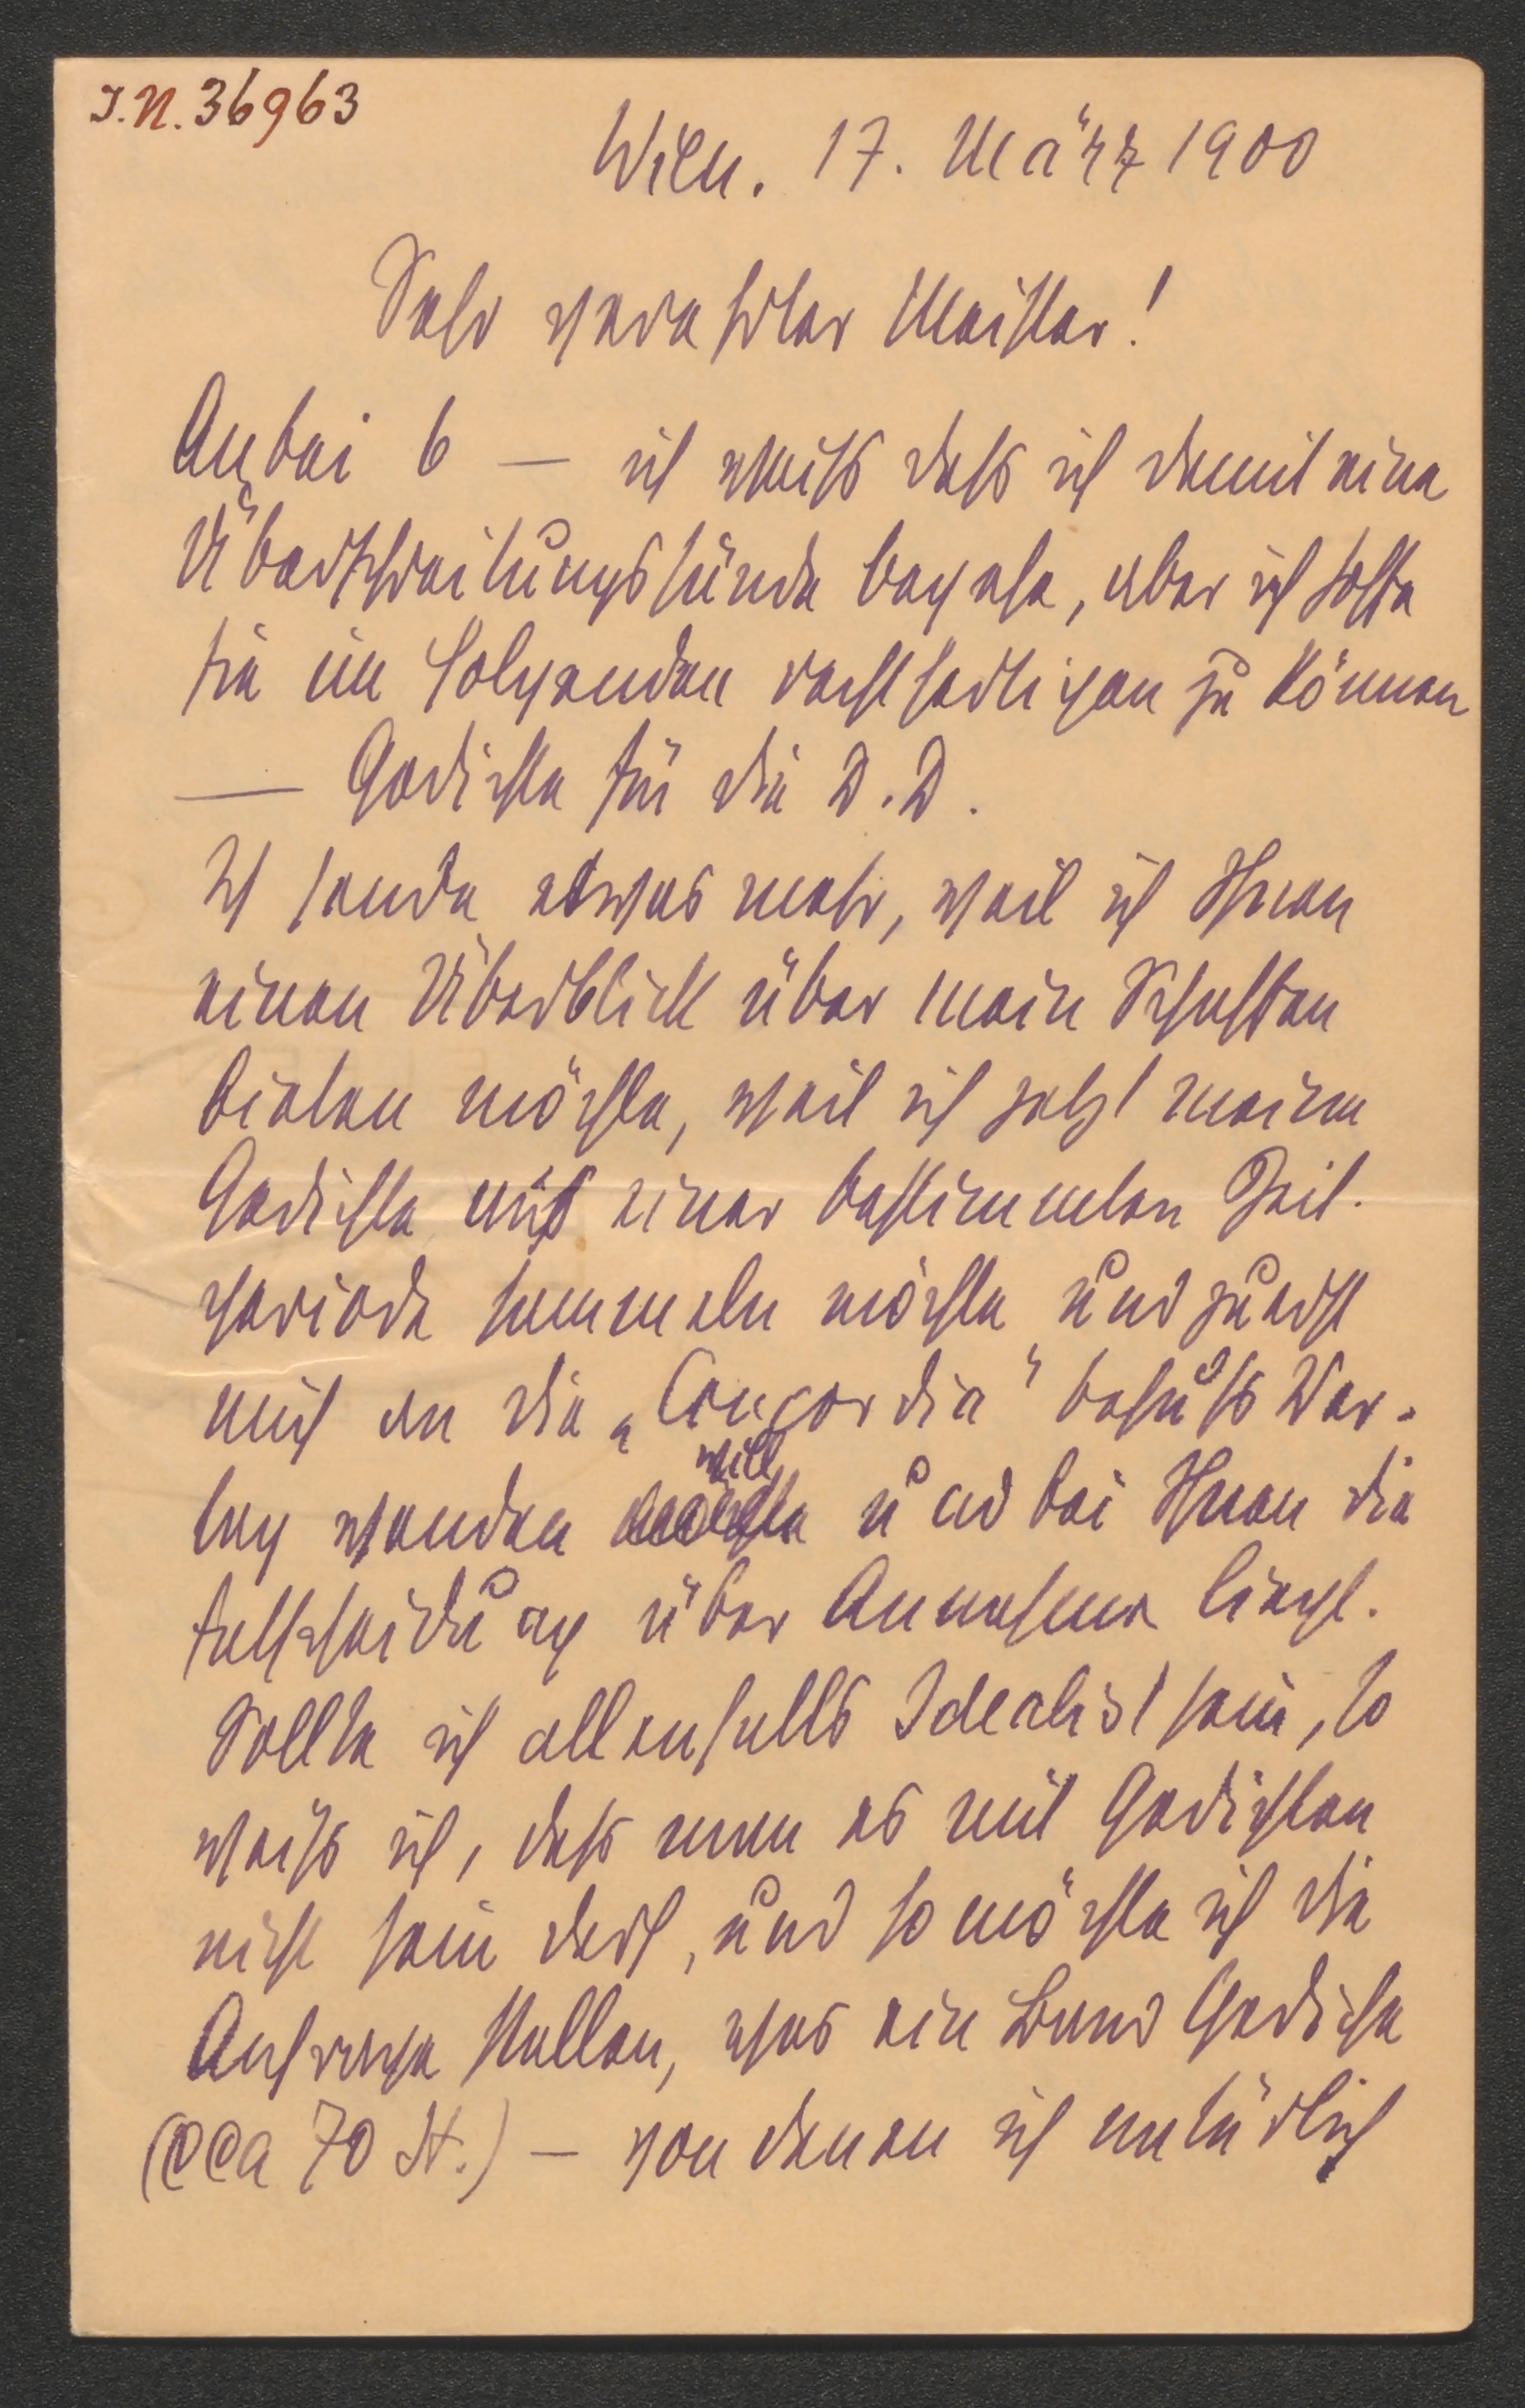 I.N. 36963
Wien. 17. März 1900
Sehr verehrter Meister!
Anbei 6 — ich weiß daß ich damit eine
Überschreitungssünde begehe, aber ich hoffe
sie im Folgenden rechtfertigen zu können
— Gedichte für die D.D.
Ich sende etwas mehr, weil ich Ihnen
einen Überblick über mein Schaffen
bieten möchte, weil ich jetzt meine
Gedichte aus einer bestimmten Zeit-
periode sammeln möchte und zuerst
mich an die „Concordia" behufs Ver-
lag wenden will und bei Ihnen die
Entscheidung über Annahme liegt.
Sollte ich allenfalls Idealist sein, so
weiß ich, daß man es mit Gedichten
nicht sein darf, und so möchte ich die
Anfrage stellen, was ein Band Gedichte
(cca 70 St.) — von denen ich natürlich